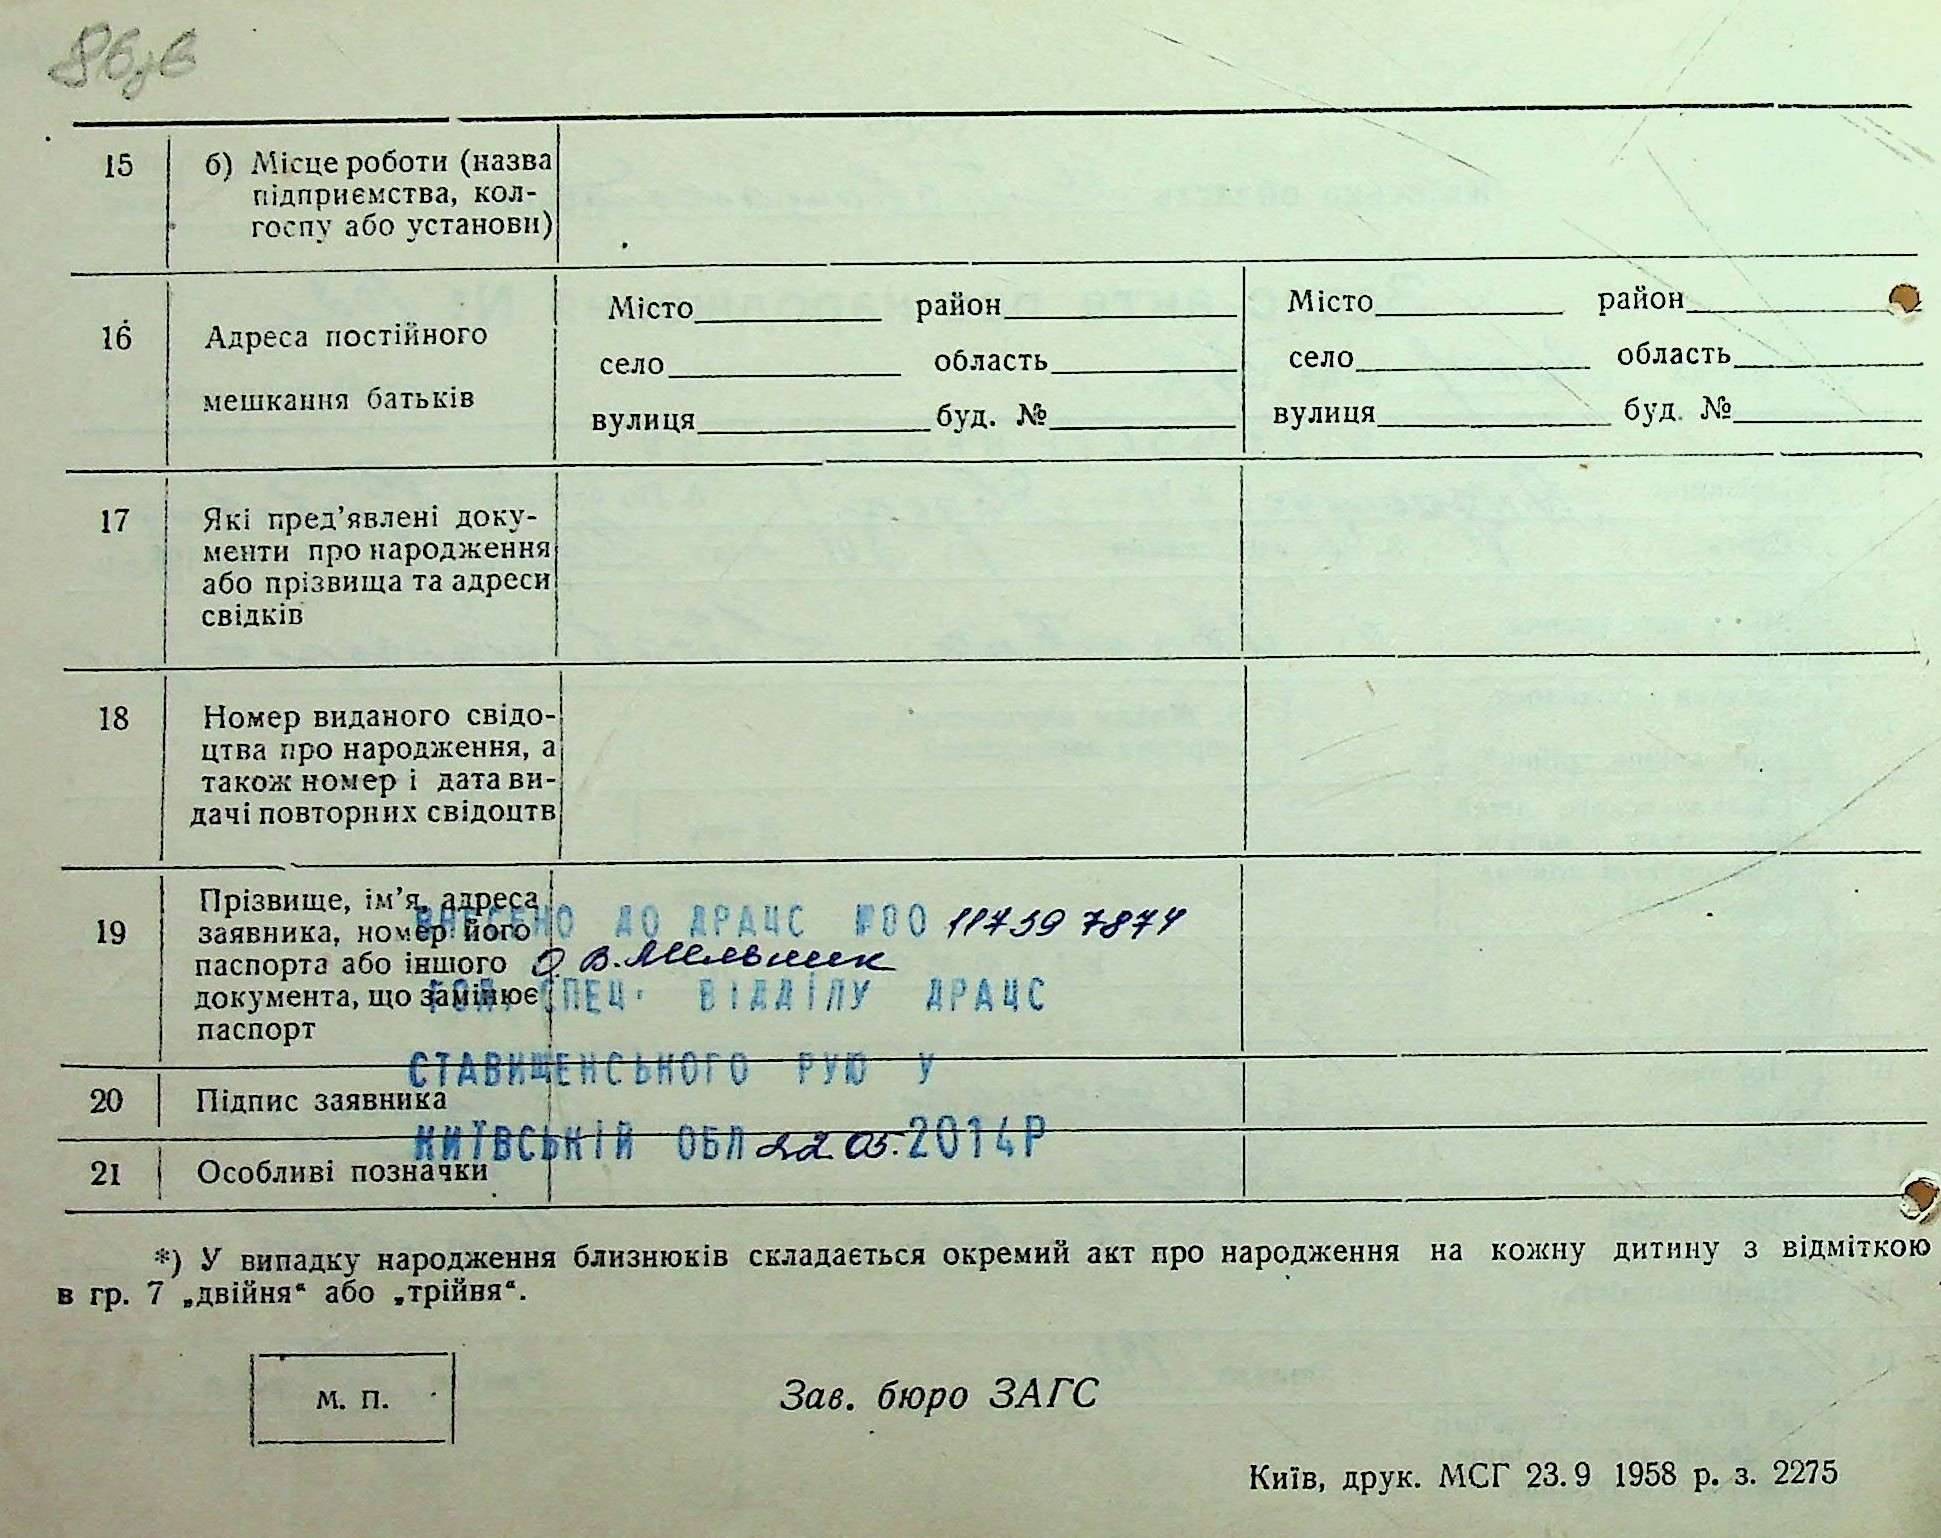 15 б) Місце роботи (назва
підприємства, кол-
госпу або установи)
16 Адреса постійного
мешкання батьків
Місто район
село область
вулиця буд. №
Місто район
село область
вулиця буд. №
17 Які пред’явлені доку-
менти про народження
або прізвища та адреси
свідків
18 Номер виданого свідо-
цтва про народження, а
також номер і дата ви-
дачі повторних свідоцтв
19 Прізвище, ім’я, адреса
заявника, номер його
паспорта або іншого
документа, що замінює
паспорт
ВНЕСЕНО ДО ДРАЦС №00 11739 7874
О. В. Мельник
ГОЛ. СПЕЦ. ВІДДІЛУ ДРАЦС
СТАВИЩЕНСЬКОГО РУЮ У
КИЇВСЬКІЙ ОБЛ 22 05. 2014Р
20 Підпис заявника
21 Особливі позначки
*) У випадку народження близнюків складається окремий акт про народження на кожну дитину з відміткою
в гр. 7 „двійня“ або „трійня“.
М. П.
Зав. бюро ЗАГС
Київ, друк. МСГ 23.9 1958 р. з. 2275